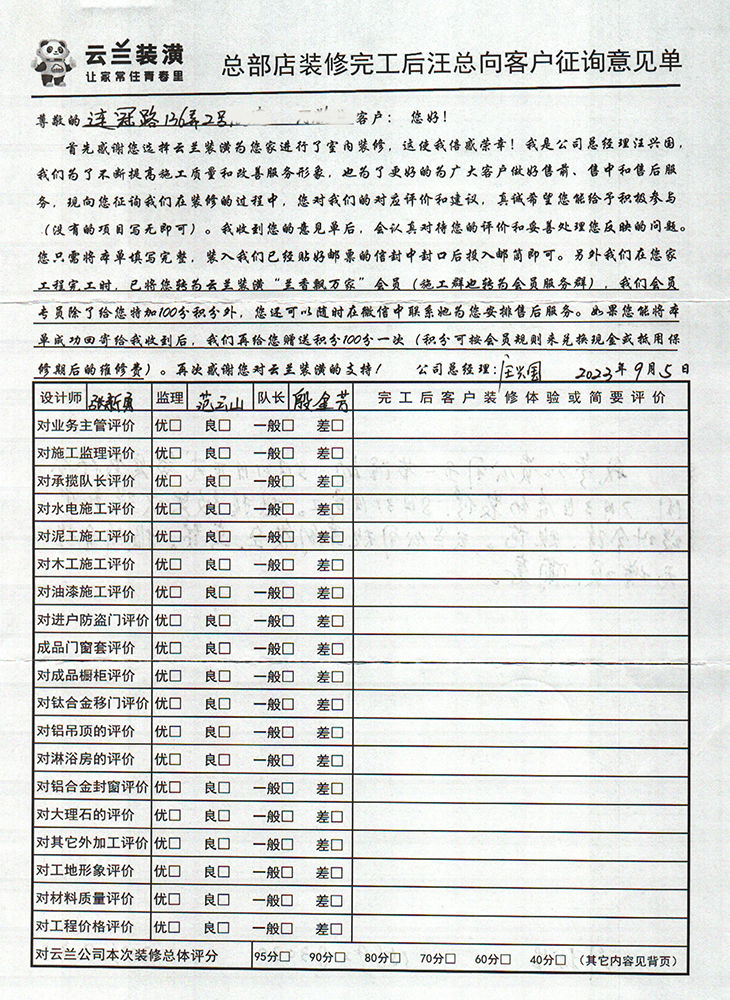 云兰装潢
让家常住青春里
总部店装修完工后汪总向客户征询意见单
尊敬的 连冠路136弄2号 客户： 您好！
首先感谢您选择云兰装潢为您家进行了室内装修，这使我倍感荣幸！我是公司总经理汪兴国，
我们为了不断提高施工质量和改善服务形象，也为了更好的为广大客户做好售前、售中和售后服
务，现向您征询我们在装修的过程中，您对我们的对应评价和建议，真诚希望您能给予积极参与
（没有的项目写无即可）。我收到您的意见单后，会认真对待您的评价和妥善处理您反映的问题。
您只需将本单填写完整，装入我们已经贴好邮票的信封中封口后投入邮筒即可。另外我们在您家
工程完工时，已将您转为云兰装潢“兰香飘万家”会员（施工群也转为会员服务群），我们会员
专员除了给您特加100分积分外，您还可以随时在微信中联系她为您安排售后服务。如果您能将本
单成功回寄给我收到后，我们再给您赠送积分100分一次（积分可按会员规则来兑换现金或抵用保
修期后的维修费）。再次感谢您对云兰装潢的支持！ 公司总经理：汪兴国 2023年9月5日
设计师 张新勇 监理 范云山 队长 殷金芳 完工后客户装修体验或简要评价
对业务主管评价 优□ 良□ 一般□ 差□
对施工监理评价 优□ 良□ 一般□ 差□
对承揽队长评价 优□ 良□ 一般□ 差□
对水电施工评价 优□ 良□ 一般□ 差□
对泥工施工评价 优□ 良□ 一般□ 差□
对木工施工评价 优□ 良□ 一般□ 差□
对油漆施工评价 优□ 良□ 一般□ 差□
对进户防盗门评价 优□ 良□ 一般□ 差□
成品门窗套评价 优□ 良□ 一般□ 差□
对成品橱柜评价 优□ 良□ 一般□ 差□
对钛合金移门评价 优□ 良□ 一般□ 差□
对铝吊顶的评价 优□ 良□ 一般□ 差□
对淋浴房的评价 优□ 良□ 一般□ 差□
对铝合金封窗评价 优□ 良□ 一般□ 差□
对大理石的评价 优□ 良□ 一般□ 差□
对其它外加工评价 优□ 良□ 一般□ 差□
对工地形象评价 优□ 良□ 一般□ 差□
对材料质量评价 优□ 良□ 一般□ 差□
对工程价格评价 优□ 良□ 一般□ 差□
对云兰公司本次装修总体评分 95分□ 90分□ 80分□ 70分□ 60分□ 40分□ （其它内容见背页）